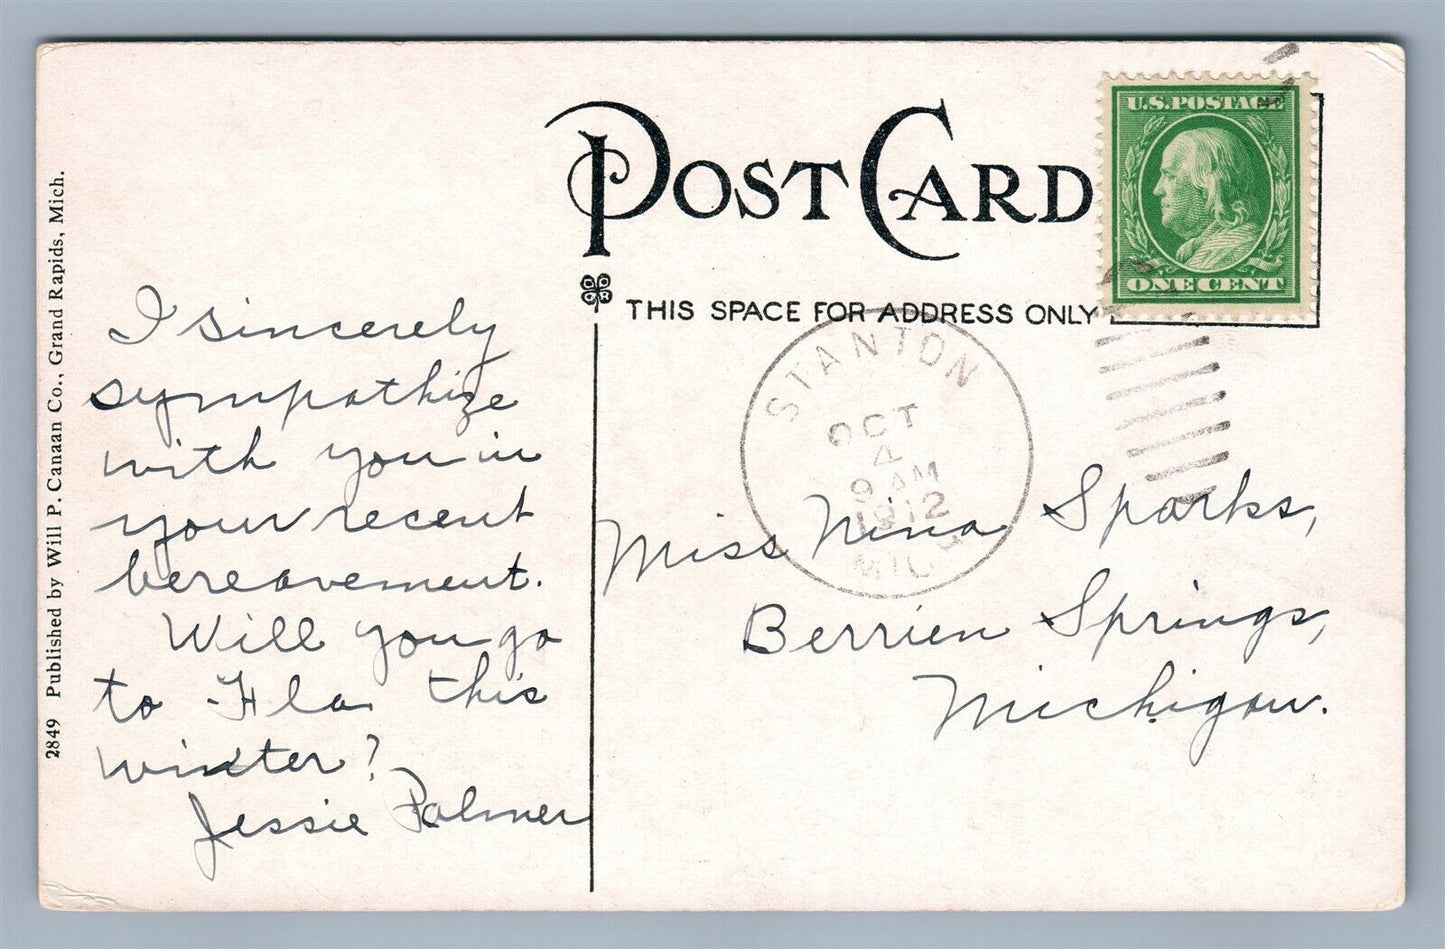 POST CARD
U.S.POSTAGE
ONE CENT
THIS SPACE FOR ADDRESS ONLY
STANTON
OCT
4
9 AM
1912
MICH
I sincerely
sympathize
with you in
your recent
bereavement.
Will you go
to Fla this
winter?
Jessie Palmer
Miss Nina Sparks,
Berrien Springs,
Michigan.
2849 Published by Will P. Canaan Co., Grand Rapids, Mich.